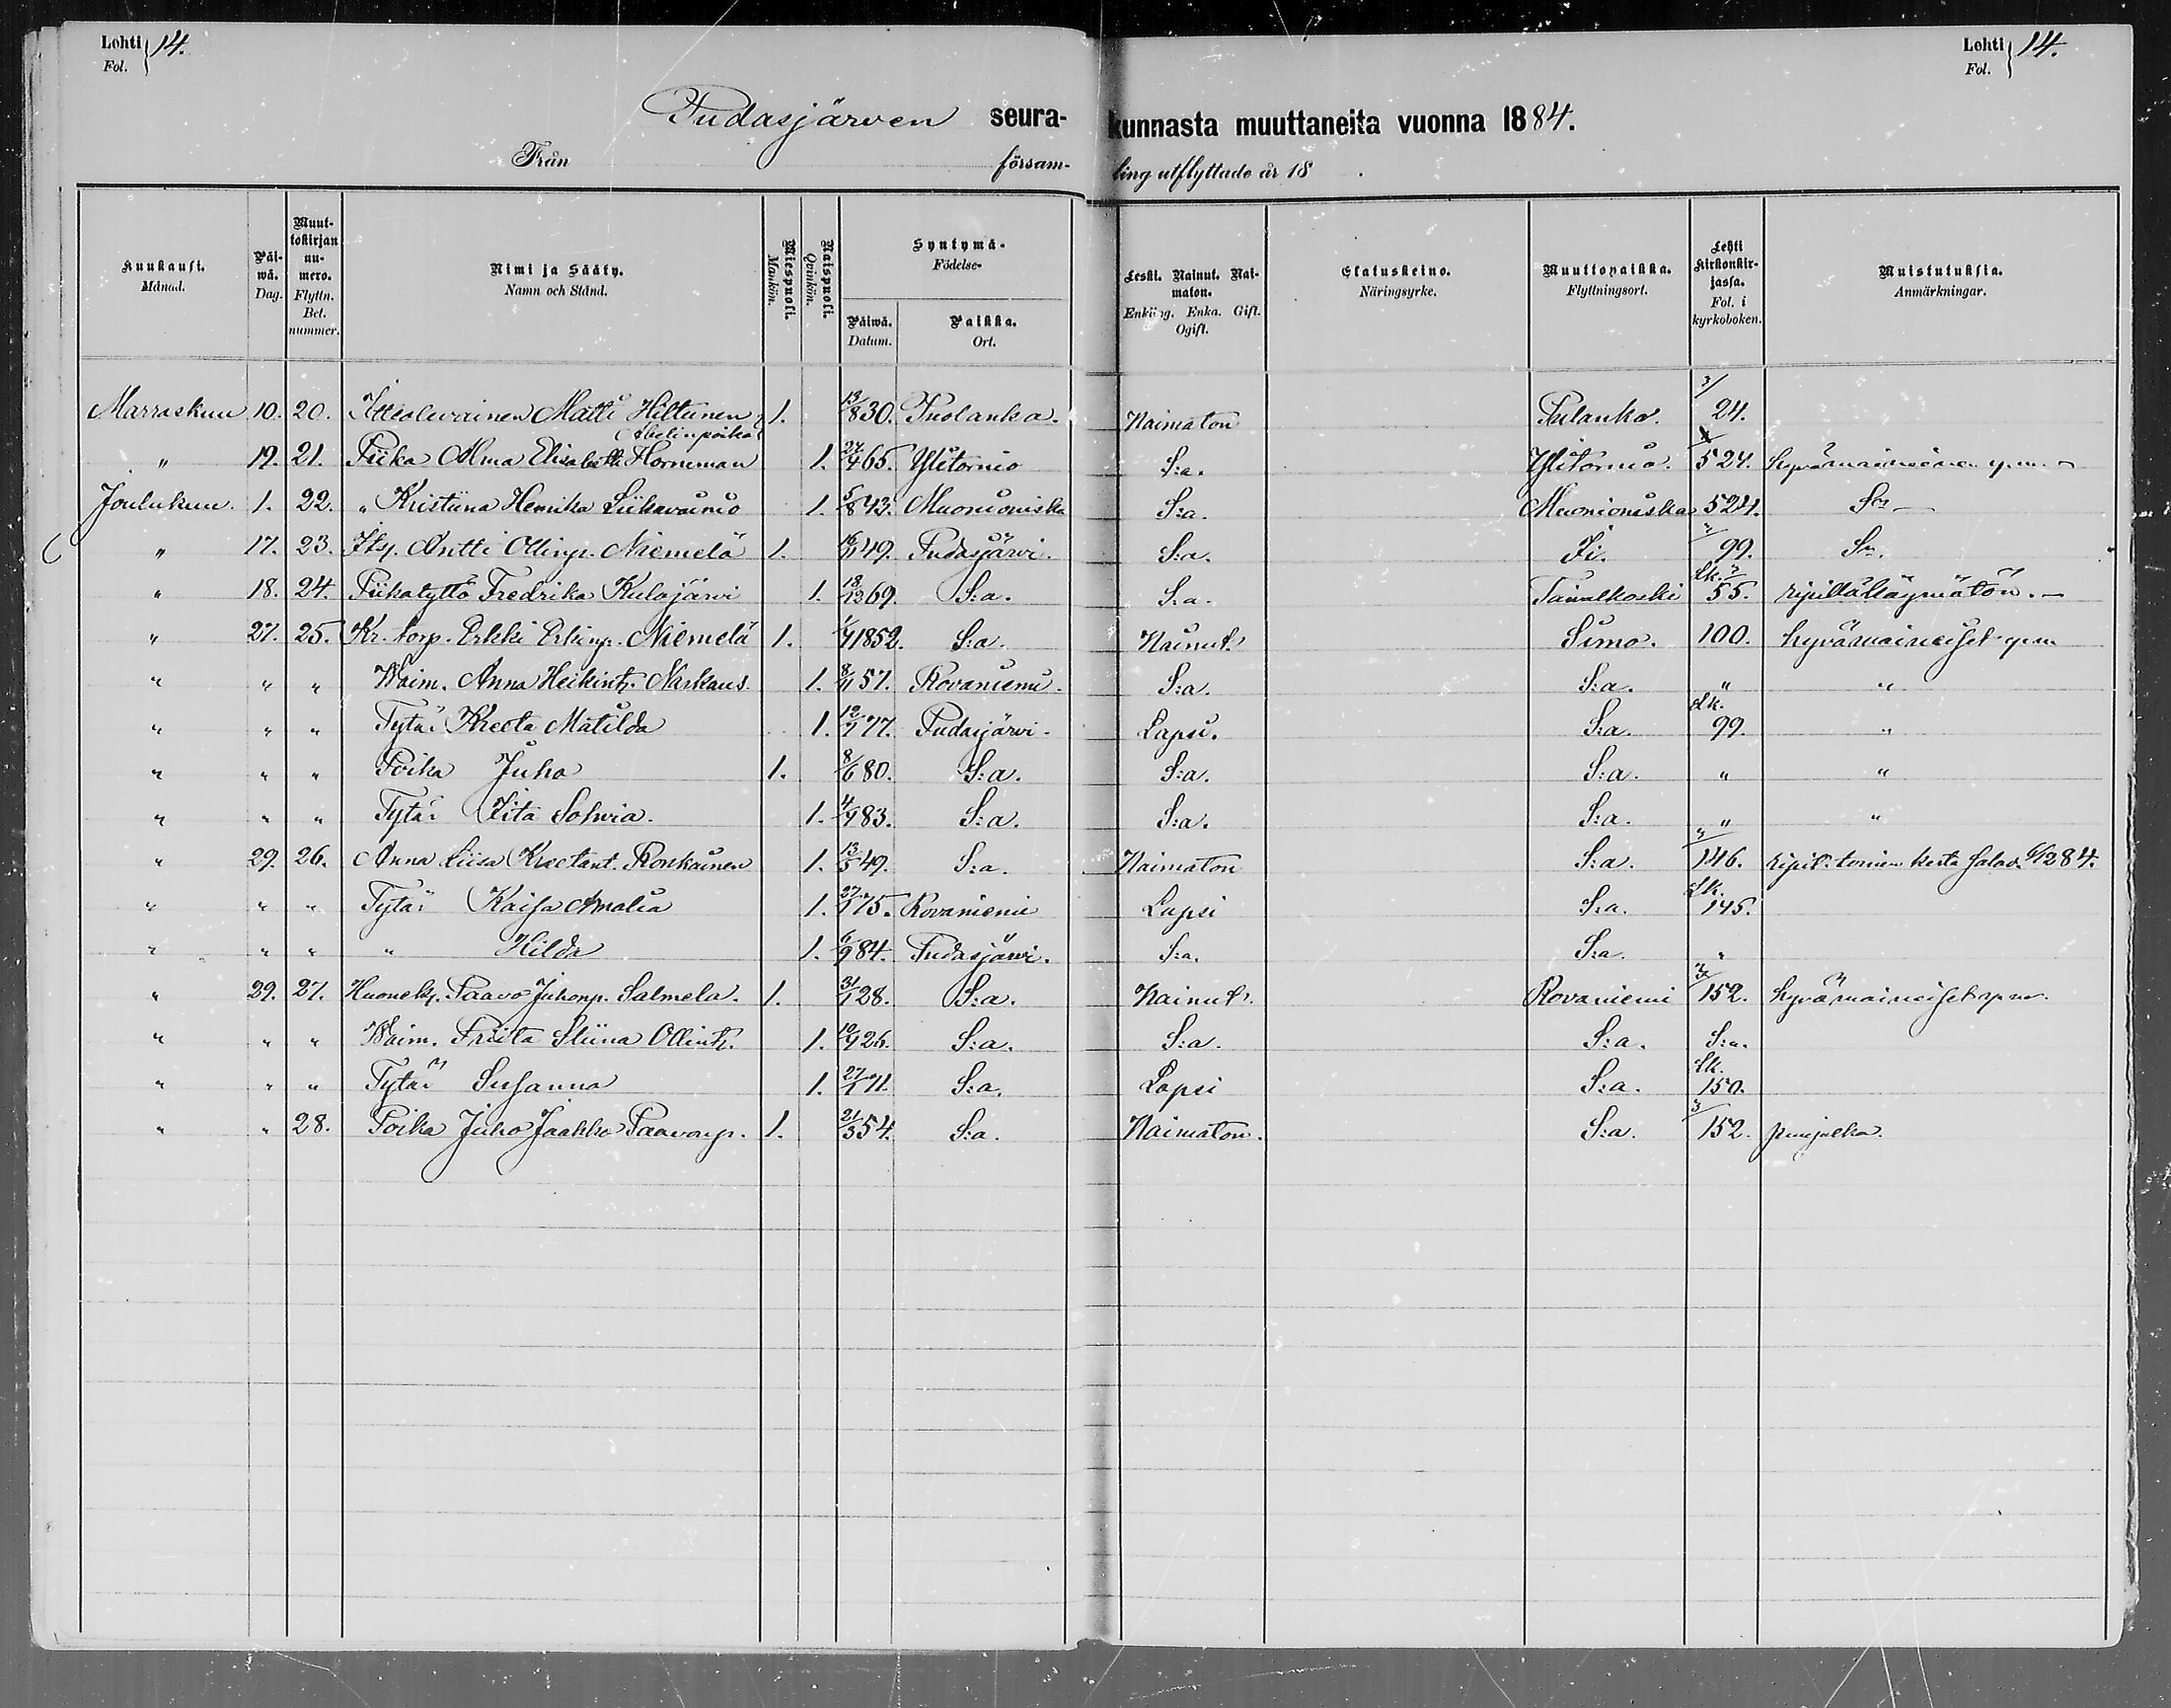 Lehti Fol. } 14.
Lehti Fol. } 14.
Pudasjärven seurakunnasta muuttaneita vuonna 1884.
Från församling utflyttade år 18 .
Kuukausi. Månad.
Päiwä. Dag.
Muuttokirjan numero. Flyttn. Bet. nummer.
Nimi ja Sääty. Namn och Stånd.
Miespuoli. Mankön.
Naispuoli. Qvinkön.
Syntymä- Födelse-
Päiwä. Datum.
Paikka. Ort.
Leski. Nainut. Naimaton. Enkling. Enka. Gift. Ogift.
Elatuskeino. Näringsyrke.
Muuttopaikka. Flyttningsort.
Lehti kirkonkirjassa. Fol. i kyrkoboken.
Muistutuksia. Anmärkningar.
Marraskuu 10. 20. Itteolevainen Matti Hiltunen 1. 13/8 30. Puolanka. Naimaton Pulanka. 24.
Abelinpoika
" 19. 21. Piika Alma Elisabeth Horneman 1. 24/4 65. Ylitornio S:a. Ylitornio. 524. hyvämaineinen y.m.
Joulukuu. 1. 22. " Kristiina Henrika Liikavainio 1. 5/8 43. Muonioniska S:a. Muonioniska 524. Sn
" 17. 23. Itsp. Antti Ollinp. Niemelä 1. 16/11 49. Pudasjärvi. S:a. Ii. 99. Sn.
" 18. 24. Piikatyttö Fredrika Kulojärvi 1. 18/12 69. S:a. S:a. Taivalkoski Lk. 55. ripillä käymätön.
" 27. 25. Kr. torp. Erkki Erkinp. Niemelä 1. 1/4 1852. S:a. Nainut Simo. 100. hyvämaineiset y.m
" " " Waim. Anna Heikint. Narkaus. 1. 8/11 57. Rovaniemi. S:a. S:a. " "
" " " Tytär Kreeta Matilda 1. 12/7 77. Pudasjärvi. Lapsi. S:a. Lk. 99. "
" " " Poika Juho 1. 8/6 80. S:a. S:a. S:a. " "
" " " Tytär Iita Sohvia. 1. 4/7 83. S:a. S:a. S:a. " "
" 29. 26. Anna Liisa Kreetant. Ronkainen 1. 13/5 49. S:a. Naimaton S:a. 146.
" " " Tytär Kaisa Amalia 1. 27/1 75. Rovaniemi Lapsi S:a. Lk. 145.
" " " " Hilda 1. 6/9 84. Pudasjärvi. S:a. S:a. "
" 29. 27. Huonek. Paavo Juhonp. Salmela. 1. 31/1 28. S:a. Nainut. Rovaniemi 152. hyvämaineiset y.m.
" " " Waim. Priita Stiina Ollint. 1. 10/9 26. S:a. S:a. S:a. S:a.
" " " Tytär Susanna 1. 27/1 71. S:a. Lapsi S:a. Lk. 150.
" " 28. Poika Juho Jaakko Paavonp. 1. 21/3 54. S:a. Naimaton. S:a. 152. puujalka.